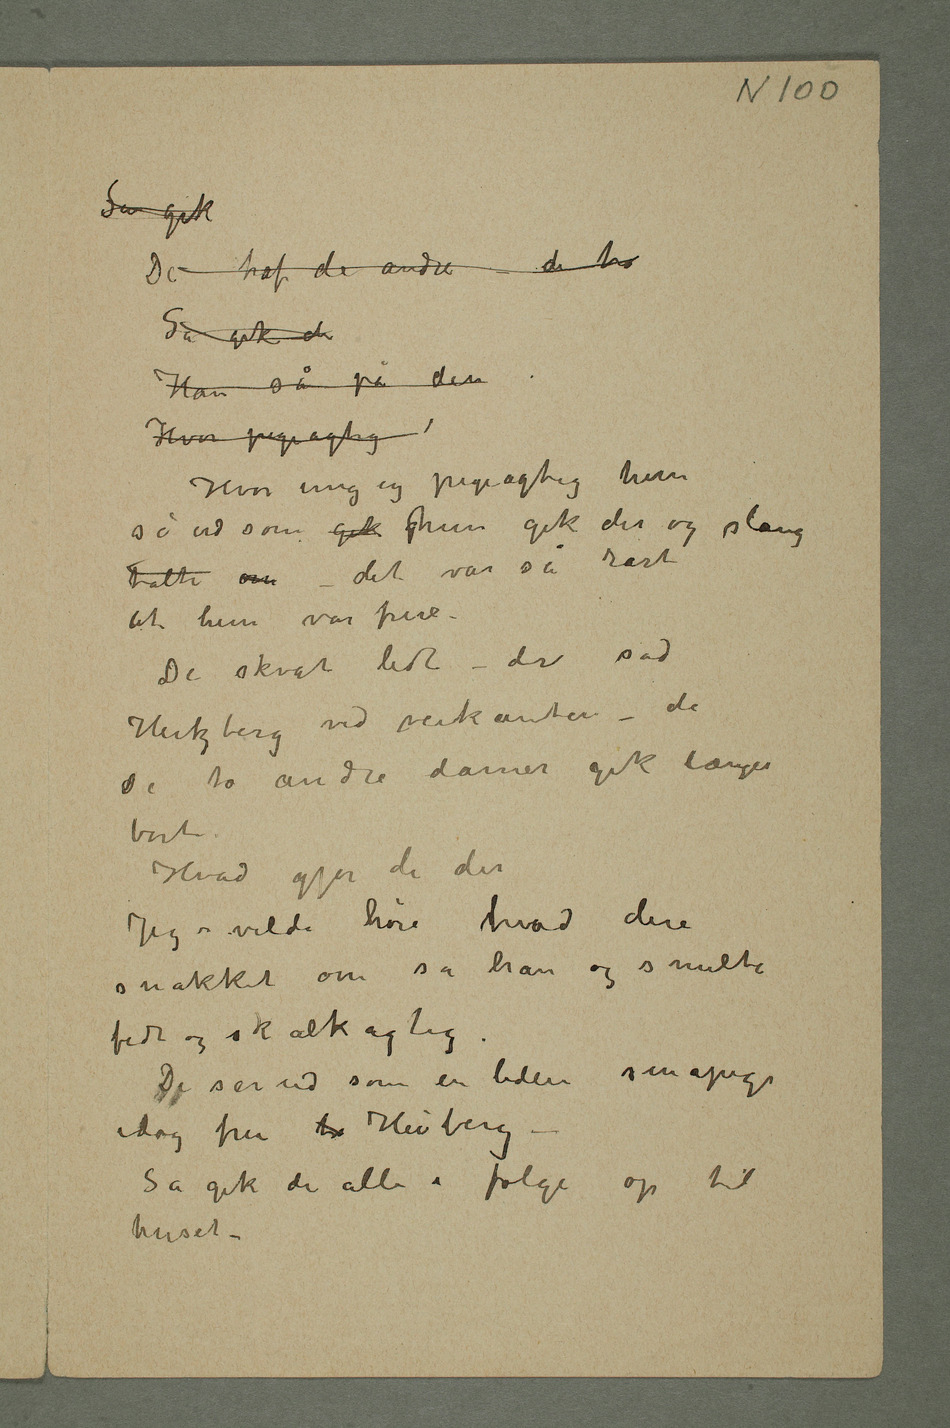 N 100
Så gik
De traf de andre – de to
Så gik de
Han så på den
Hvor pigeagtig!
Hvor ung og pigeagtig hun
så ud som gik hun gik der og slang
talte om – det var så rart
at hun var frue –
De skvat lidt – der sad
Heitzberg ved veikanten – de
de to andre damer gik længer
bort.
Hvad gjør de der
Jeg vilde høre hvad dere
snakket om sa han og smilte
fedt og skalkagtig.
De ser ud som en liden småpige
idag fru to Heiberg –
Så gik de alle i følge op til
huset –